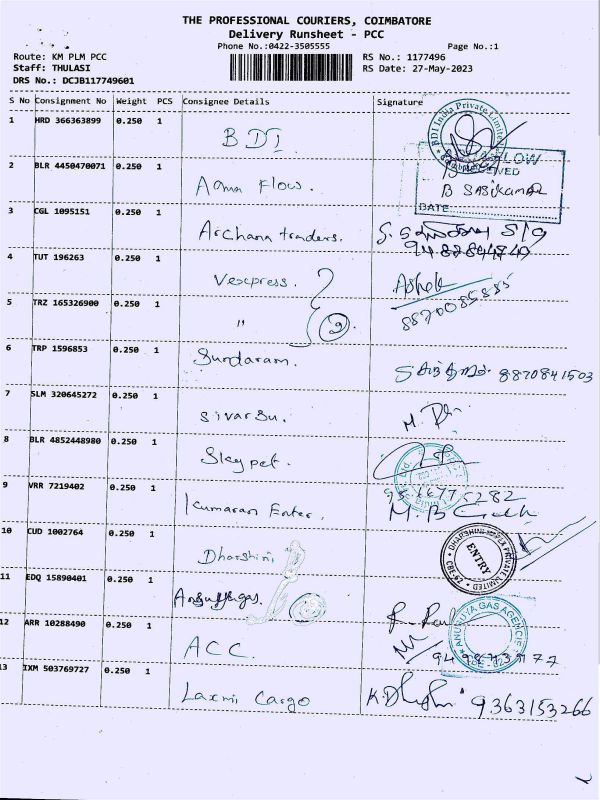 THE PROFESSIONAL COURIERS, COIMBATORE
Delivery Runsheet - PCC
Phone No.:0422-3505555 Page No.:1
Route: KM PLM PCC RS No.: 1177496
Staff: THULASI RS Date: 27-May-2023
DRS No.: DCJB117749601
S No Consignment No Weight PCS Consignee Details Signature
1 HRD 366363899 0.250 1 BDI
BDI India Private Limited
2 BLR 4450470071 0.250 1 Aqua Flow.
B SASIKUMAR
DATE
3 CGL 1095151 0.250 1 Archana traders.
4 TUT 196263 0.250 1 Vexpress. Ashok
8870085885
5 TRZ 165326900 0.250 1 " 2
6 TRP 1596853 0.250 1 Sundaram. 8870841503
7 SLM 320645272 0.250 1
8 BLR 4852448980 0.250 1 Skypet.
9 VRR 7219402 0.250 1 Kumaran Enter.
10 CUD 1002764 0.250 1 Dharshini
DHARSHINI IMPEX PRIVATE LIMITED
ENTRY
11 EDQ 15890401 0.250 1
ANUSUYA GAS AGENCIE
12 ARR 10288490 0.250 1 ACC.
13 IXM 503769727 0.250 1 Laxmi Cargo 9363153266